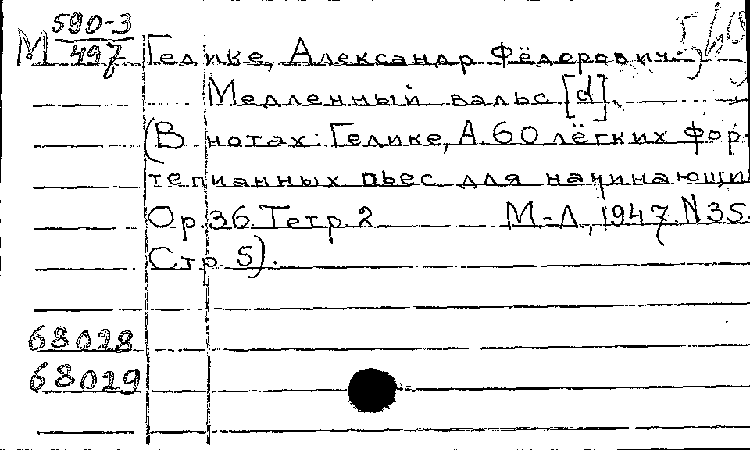 М 590-3/497 Гедике, Александр Фёдорович.
Медленный вальс [d].
(В нотах: Гедике, А. 60 лёгких фор-
тепианных пьес для начинающи
Ор. 36. Тетр. 2 М-Л, 1947. N 35.
Стр. 5).
68028
68029